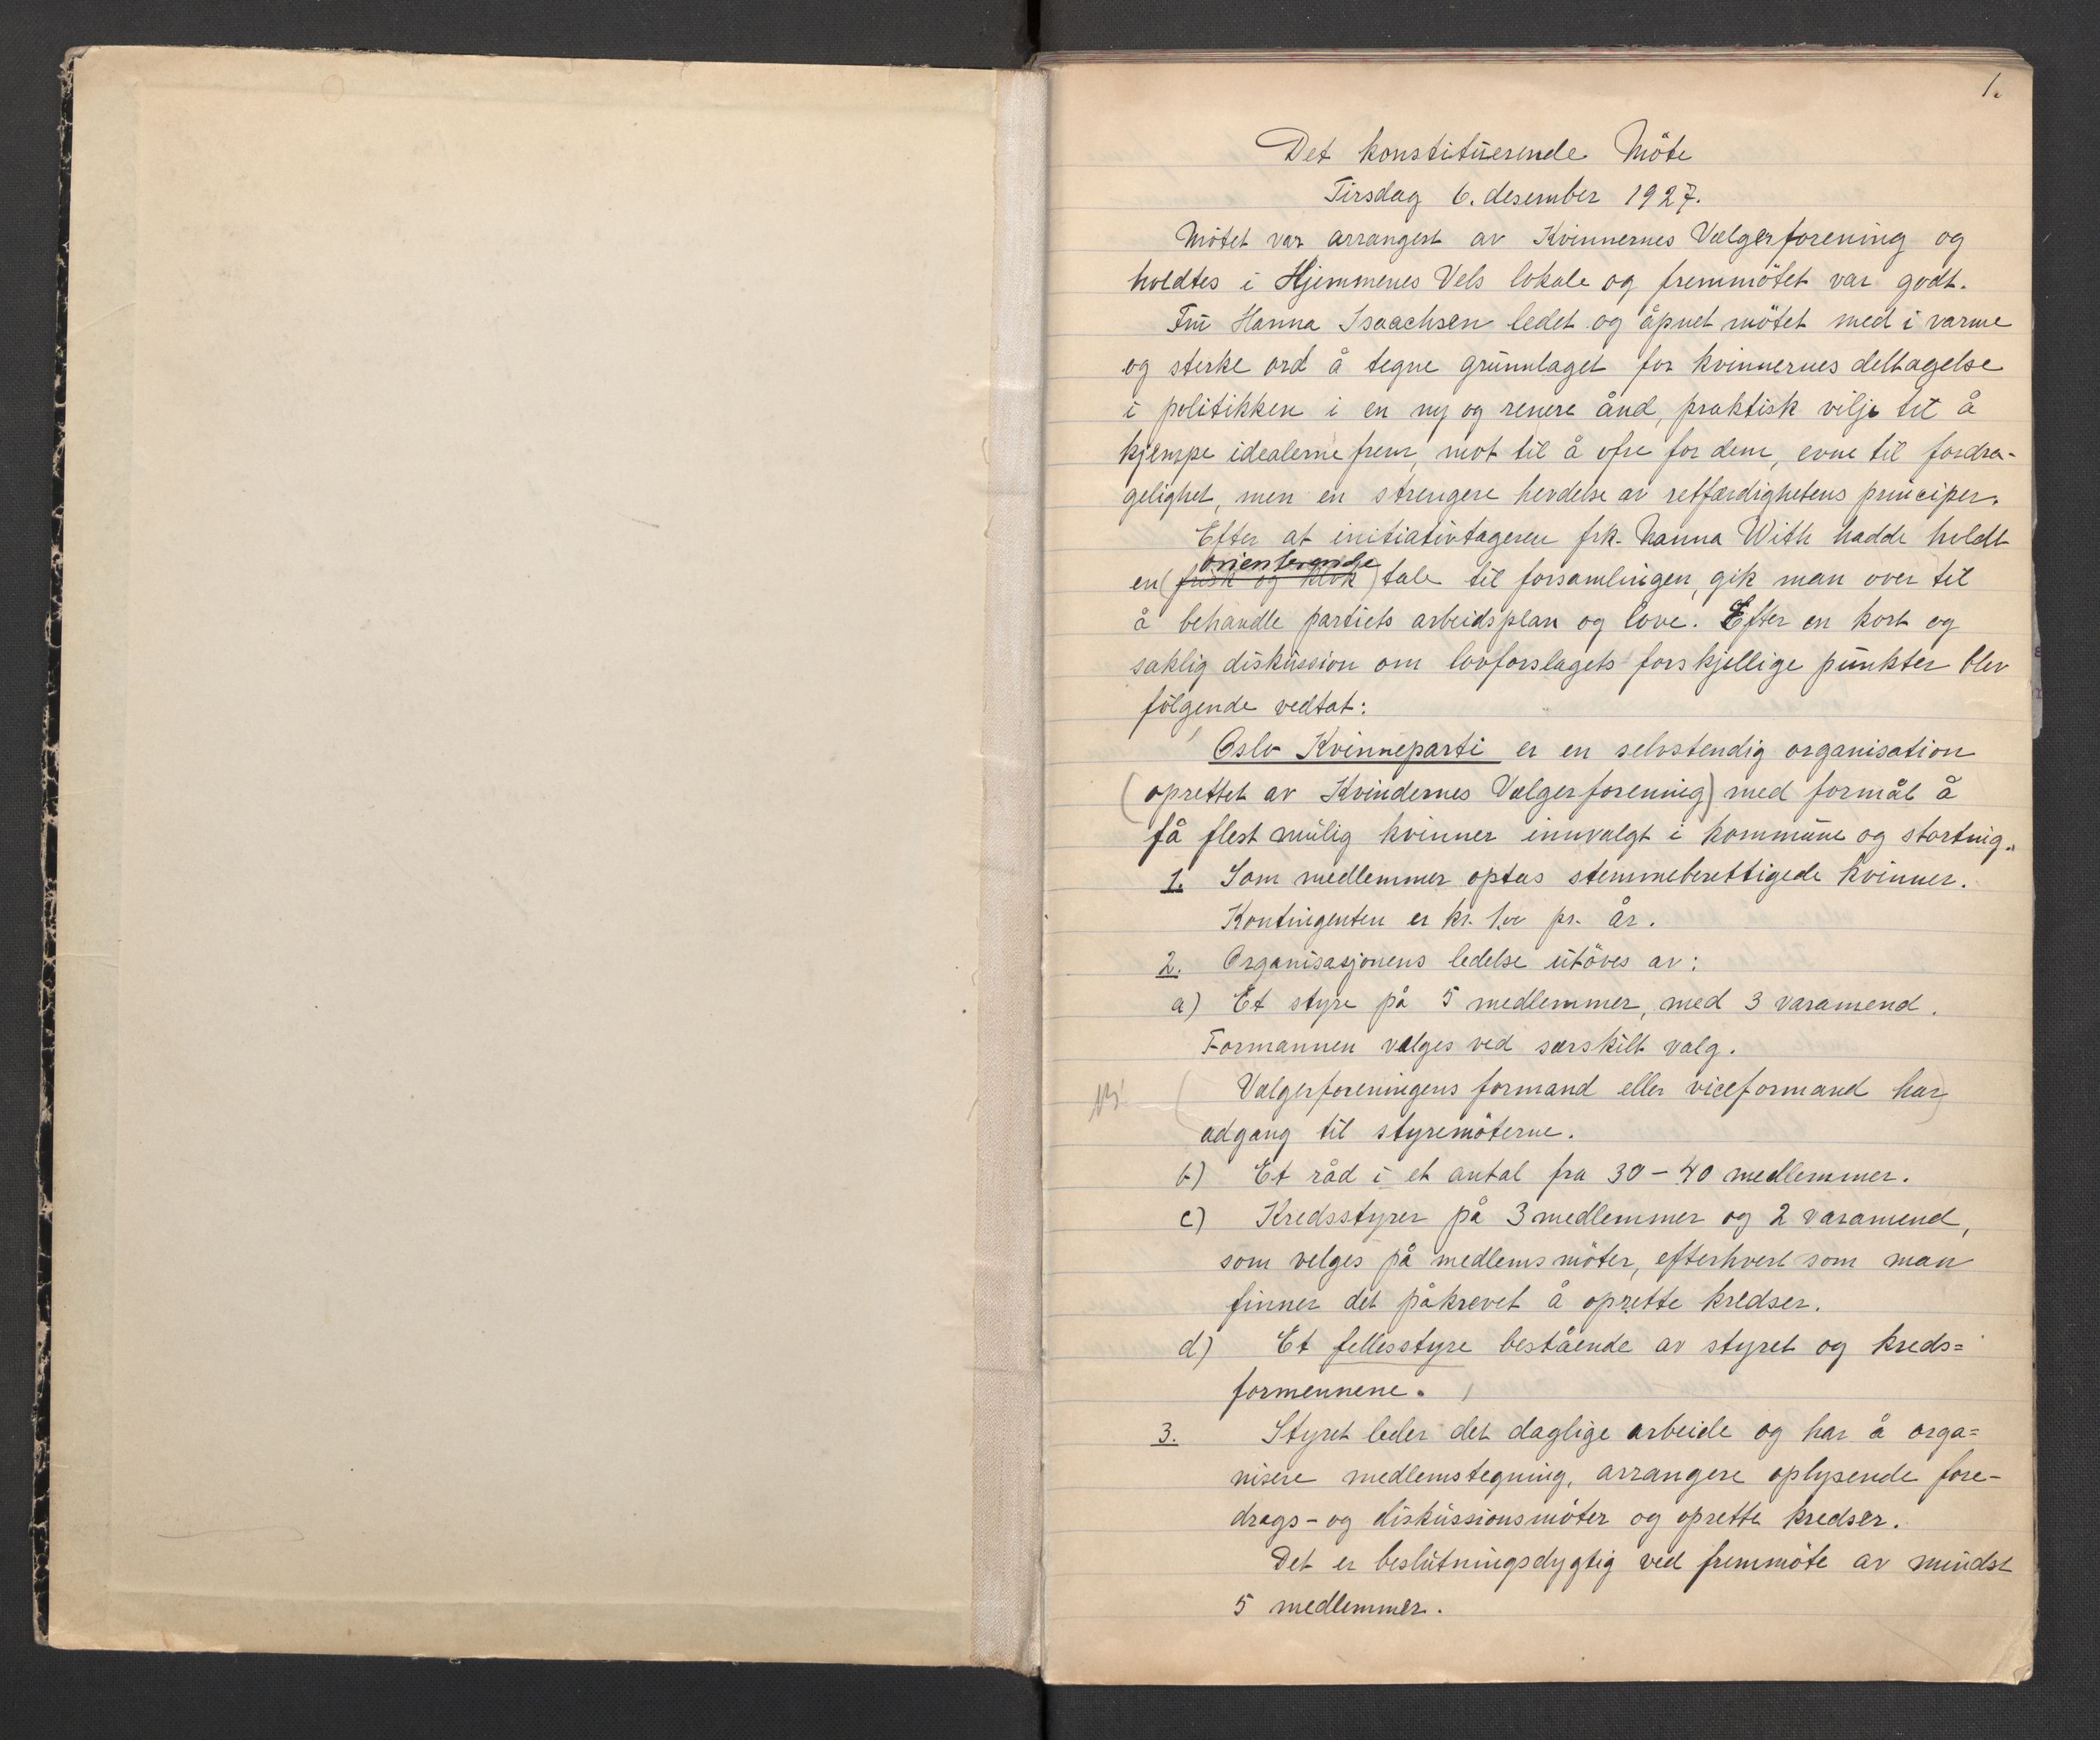 1.
Det konstituerende Möte
Tirsdag 6. desember 1927.
Mötet var arrangert av Kvinnernes Vælgerforening og
holdtes i Hjemmenes Vels lokale og fremmötet var godt.
Fru Hanna Isaachsen ledet og åpnet mötet med i varme
og sterke ord å tegne grunnlaget for kvinnernes deltagelse
i politikken i en ny og renere ånd, praktisk vilje til å
kjempe idealerne frem, mot til å ofre for dem, evne til fordra-
gelighet, men en strengere hevdelse av retfærdighetens principer.
Efter at initiativtageren frk. Nanna With hadde holdt
orienterende
en (frisk og klok) tale til forsamlingen, gik man over til
å behandle partiets arbeidsplan og love. Efter en kort og
saklig diskussion om lovforslagets forskjellige punkter blev
fölgende vedtat:
Oslo Kvinneparti er en selvstendig organisation
(oprettet av Kvindernes Vælgerforening) med formål å
få flest mulig kvinner innvalgt i kommune og storting.
1. Som medlemmer optas stemmeberettigede kvinner.
Kontingenten er kr. 1.00 pr. år.
2. Organisasjonens ledelse utöves av:
a) Et styre på 5 medlemmer, med 3 varamend.
Formannen vælges ved særskilt valg.
(Vælgerforeningens formand eller viceformand har)
adgang til styremöterne.
b) Et råd i et antal fra 30-40 medlemmer.
c) Kredsstyrer på 3 medlemmer og 2 varamend,
som velges på medlemsmöter, efterhvert som man
finner det påkrevet å oprette kredser.
d) Et fellesstyre bestående av styret og kreds=
formennene.
3. Styret leder det daglige arbeide og har å orga=
nisere medlemstegning, arrangere oplysende fore-
drags- og diskussionsmöter og oprette kredser.
Det er beslutningsdygtig ved fremmöte av mindst
5 medlemmer.